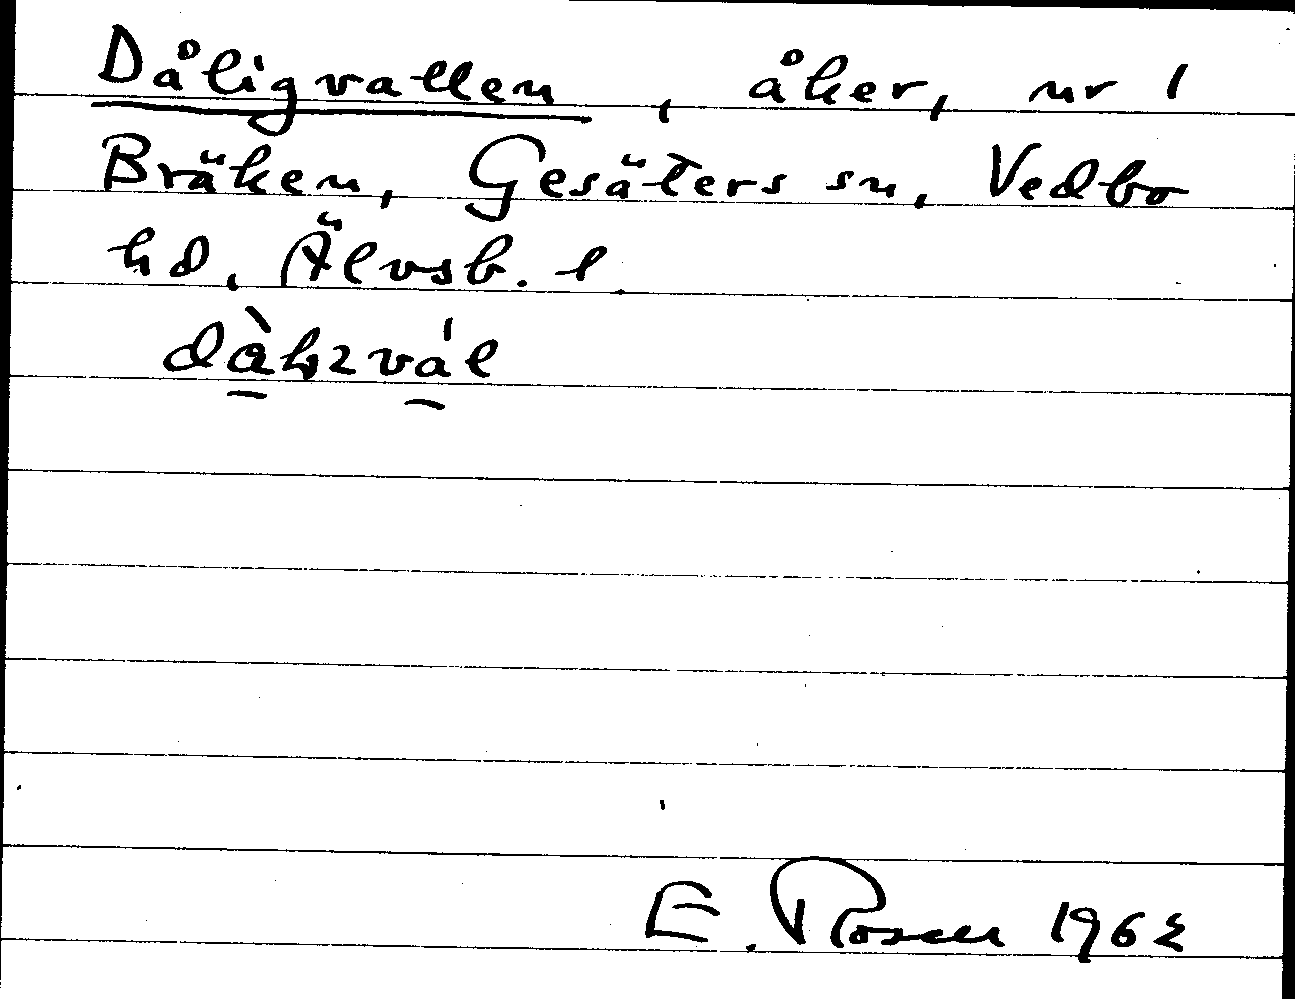 Dåligvallen, åker, nr 1
Bräken, Gesäters sn, Vedbo
hd, Älvsb. l.
E. Rosen 1962